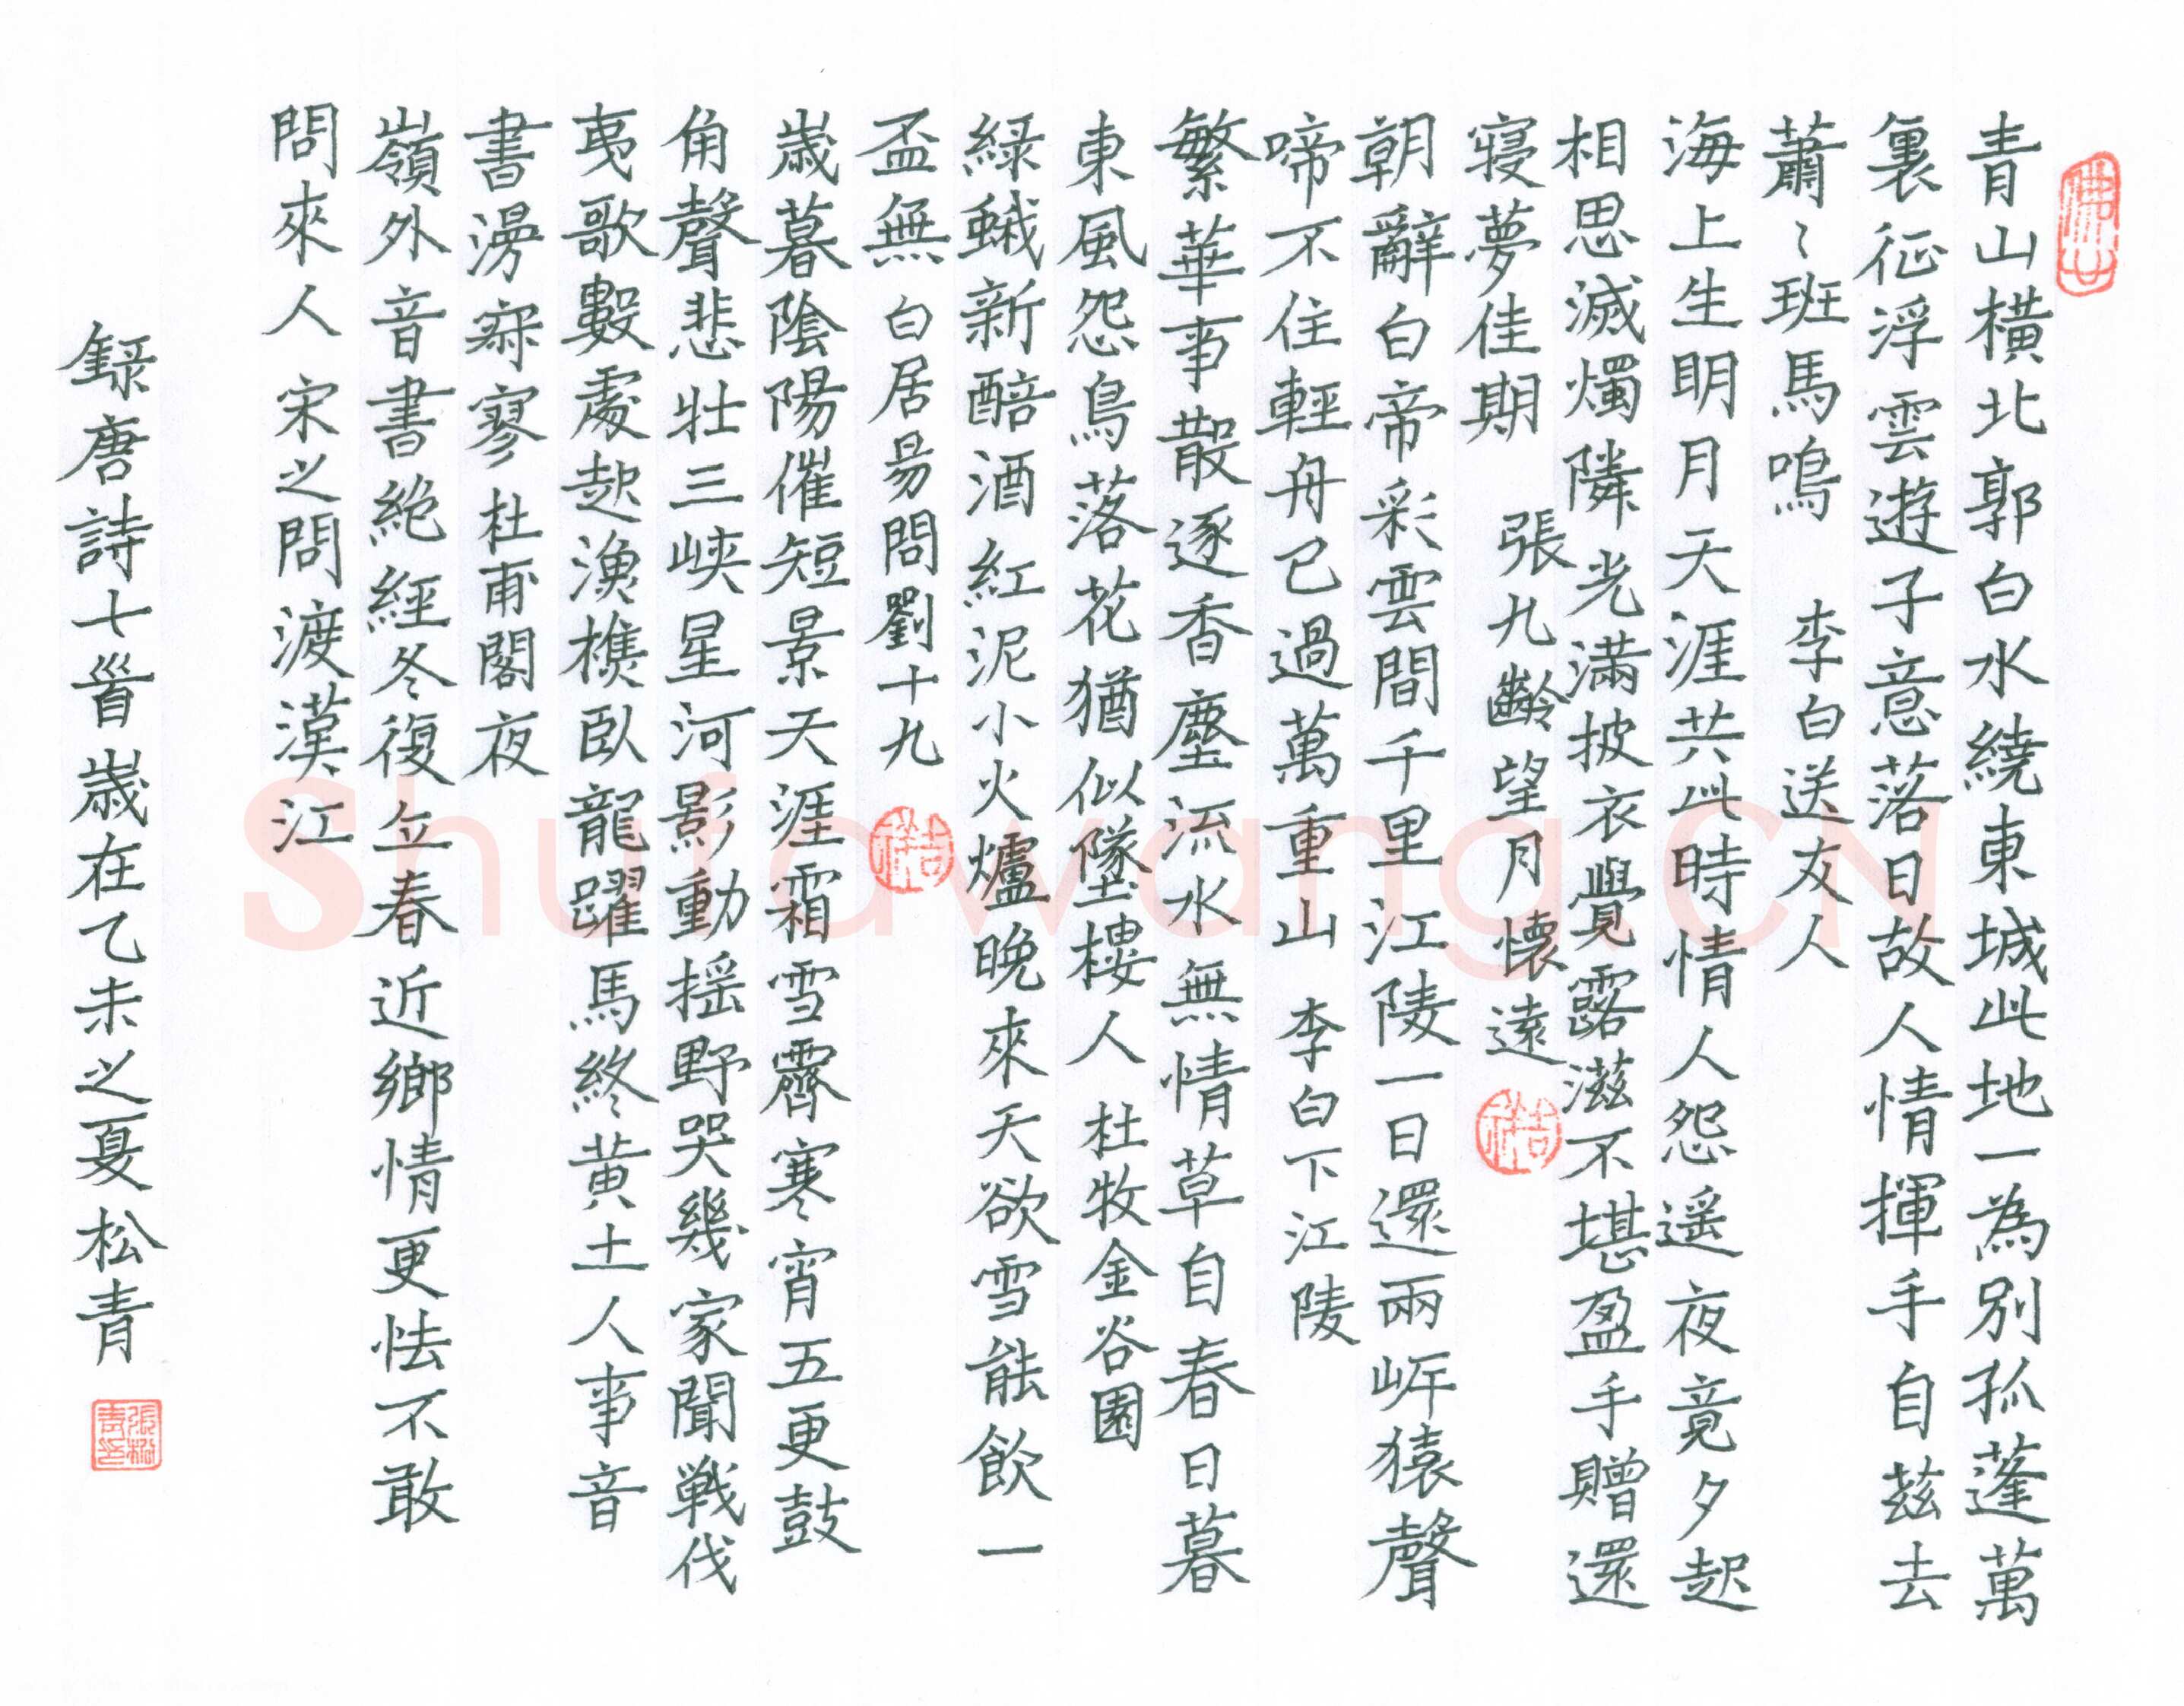 青山橫北郭白水繞東城此地一為別孤蓬萬
裏征浮雲遊子意落日故人情揮手自茲去
蕭〻班馬鳴 李白送友人
海上生明月天涯共此時情人怨遥夜竟夕起
相思滅燭隣光滿披衣覺露滋不堪盈手贈還
寝夢佳期 張九齡望月懷遠
吉祥
朝辭白帝彩雲間千里江陵一日還兩岍猿聲
啼不住輕舟已過萬重山 李白下江陵
繁華事散逐香塵流水無情草自春日暮
東風怨鳥落花猶似墜樓人 杜牧金谷園
緑蛾新醅酒紅泥小火爐晚來天欲雪能飲一
盃無 白居易問劉十九
吉祥
歲暮陰陽催短景天涯霜雪霽寒宵五更鼓
角聲悲壯三峽星河影動搖野哭幾家聞戦伐
夷歌數處起漁樵臥龍躍馬終黄土人事音
書漫寂寥 杜甫閣夜
嶺外音書絶經冬復立春近鄉情更怯不敢
問來人 宋之問渡漢江
録唐詩七首歲在乙未之夏松青
Shufawang.CN